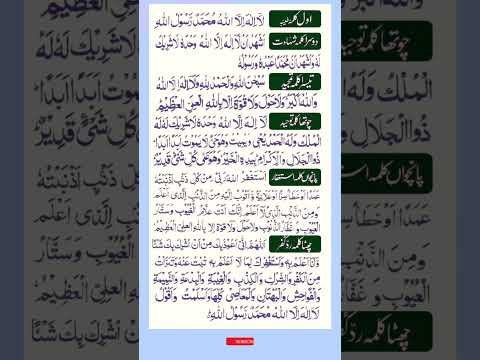 اول کلمہ طیب لَآ اِلٰهَ اِلَّا اللهُ مُحَمَّدٌ رَّسُوْلُ اللهِ
دوسرا کلمہ شہادت اَشْهَدُ اَنْ لَّآ اِلٰهَ اِلَّا اللهُ وَحْدَهٗ لَا شَرِيْكَ
لَهٗ وَاَشْهَدُ اَنَّ مُحَمَّدًا عَبْدُهٗ وَرَسُوْلُهٗ
تیسرا کلمہ تمجید سُبْحٰنَ اللهِ وَالْحَمْدُ لِلّٰهِ وَلَآ اِلٰهَ اِلَّا اللهُ
وَاللهُ اَكْبَرُ وَلَا حَوْلَ وَلَا قُوَّةَ اِلَّا بِاللهِ الْعَلِيِّ الْعَظِيْمِ
چوتھا کلمہ توحید لَآ اِلٰهَ اِلَّا اللهُ وَحْدَهٗ لَا شَرِيْكَ لَهٗ لَهُ
الْمُلْكُ وَلَهُ الْحَمْدُ يُحْيٖ وَيُمِيْتُ وَهُوَ حَيٌّ لَّا يَمُوْتُ اَبَدًا اَبَدًا
ذُو الْجَلَالِ وَالْاِكْرَامِ بِيَدِهِ الْخَيْرُ وَهُوَ عَلٰى كُلِّ شَيْءٍ قَدِيْرٌ
پانچواں کلمہ استغفار اَسْتَغْفِرُ اللهَ رَبِّيْ مِنْ كُلِّ ذَنْۢبٍ اَذْنَبْتُهٗ
عَمَدًا اَوْ خَطَأً سِرًّا اَوْ عَلَانِيَةً وَّاَتُوْبُ اِلَيْهِ مِنَ الذَّنْۢبِ الَّذِيْٓ اَعْلَمُ
وَمِنَ الذَّنْۢبِ الَّذِيْ لَآ اَعْلَمُ اِنَّكَ اَنْتَ عَلَّامُ الْغُيُوْبِ وَسَتَّارُ
الْعُيُوْبِ وَغَفَّارُ الذُّنُوْبِ وَلَا حَوْلَ وَلَا قُوَّةَ اِلَّا بِاللهِ الْعَلِيِّ الْعَظِيْمِ
چھٹا کلمہ ردِّ کفر اَللّٰهُمَّ اِنِّيْٓ اَعُوْذُ بِكَ مِنْ اَنْ اُشْرِكَ بِكَ شَيْئًا
وَّاَنَا اَعْلَمُ بِهٖ وَاَسْتَغْفِرُكَ لِمَا لَآ اَعْلَمُ بِهٖ تُبْتُ عَنْهُ وَتَبَرَّأْتُ
مِنَ الْكُفْرِ وَالشِّرْكِ وَالْكِذْبِ وَالْغِيْبَةِ وَالْبِدْعَةِ وَالنَّمِيْمَةِ
وَالْفَوَاحِشِ وَالْبُهْتَانِ وَالْمَعَاصِيْ كُلِّهَا وَاَسْلَمْتُ وَاَقُوْلُ
لَآ اِلٰهَ اِلَّا اللهُ مُحَمَّدٌ رَّسُوْلُ اللهِ